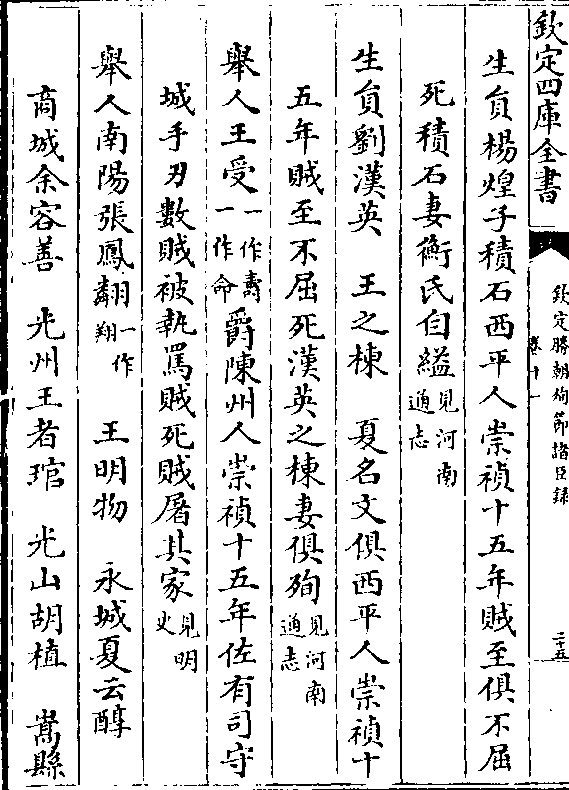 欽定四庫全書
欽定勝朝殉節諸臣錄
卷十一
二十五
生員楊煌子積石西平人崇禎十五年賊至俱不屈
死積石妻衡氏自縊見河南通志
生員劉漢英　王之棟　夏名文俱西平人崇禎十
五年賊至不屈死漢英之棟妻俱殉見河南通志
舉人王受一作壽一作命爵陳州人崇禎十五年佐有司守
城手刃數賊被執罵賊死賊屠其家見明史
舉人南陽張鳳翷一作翔　王明物　永城夏云醇
商城余容善　光州王者琯　光山胡植　嵩縣